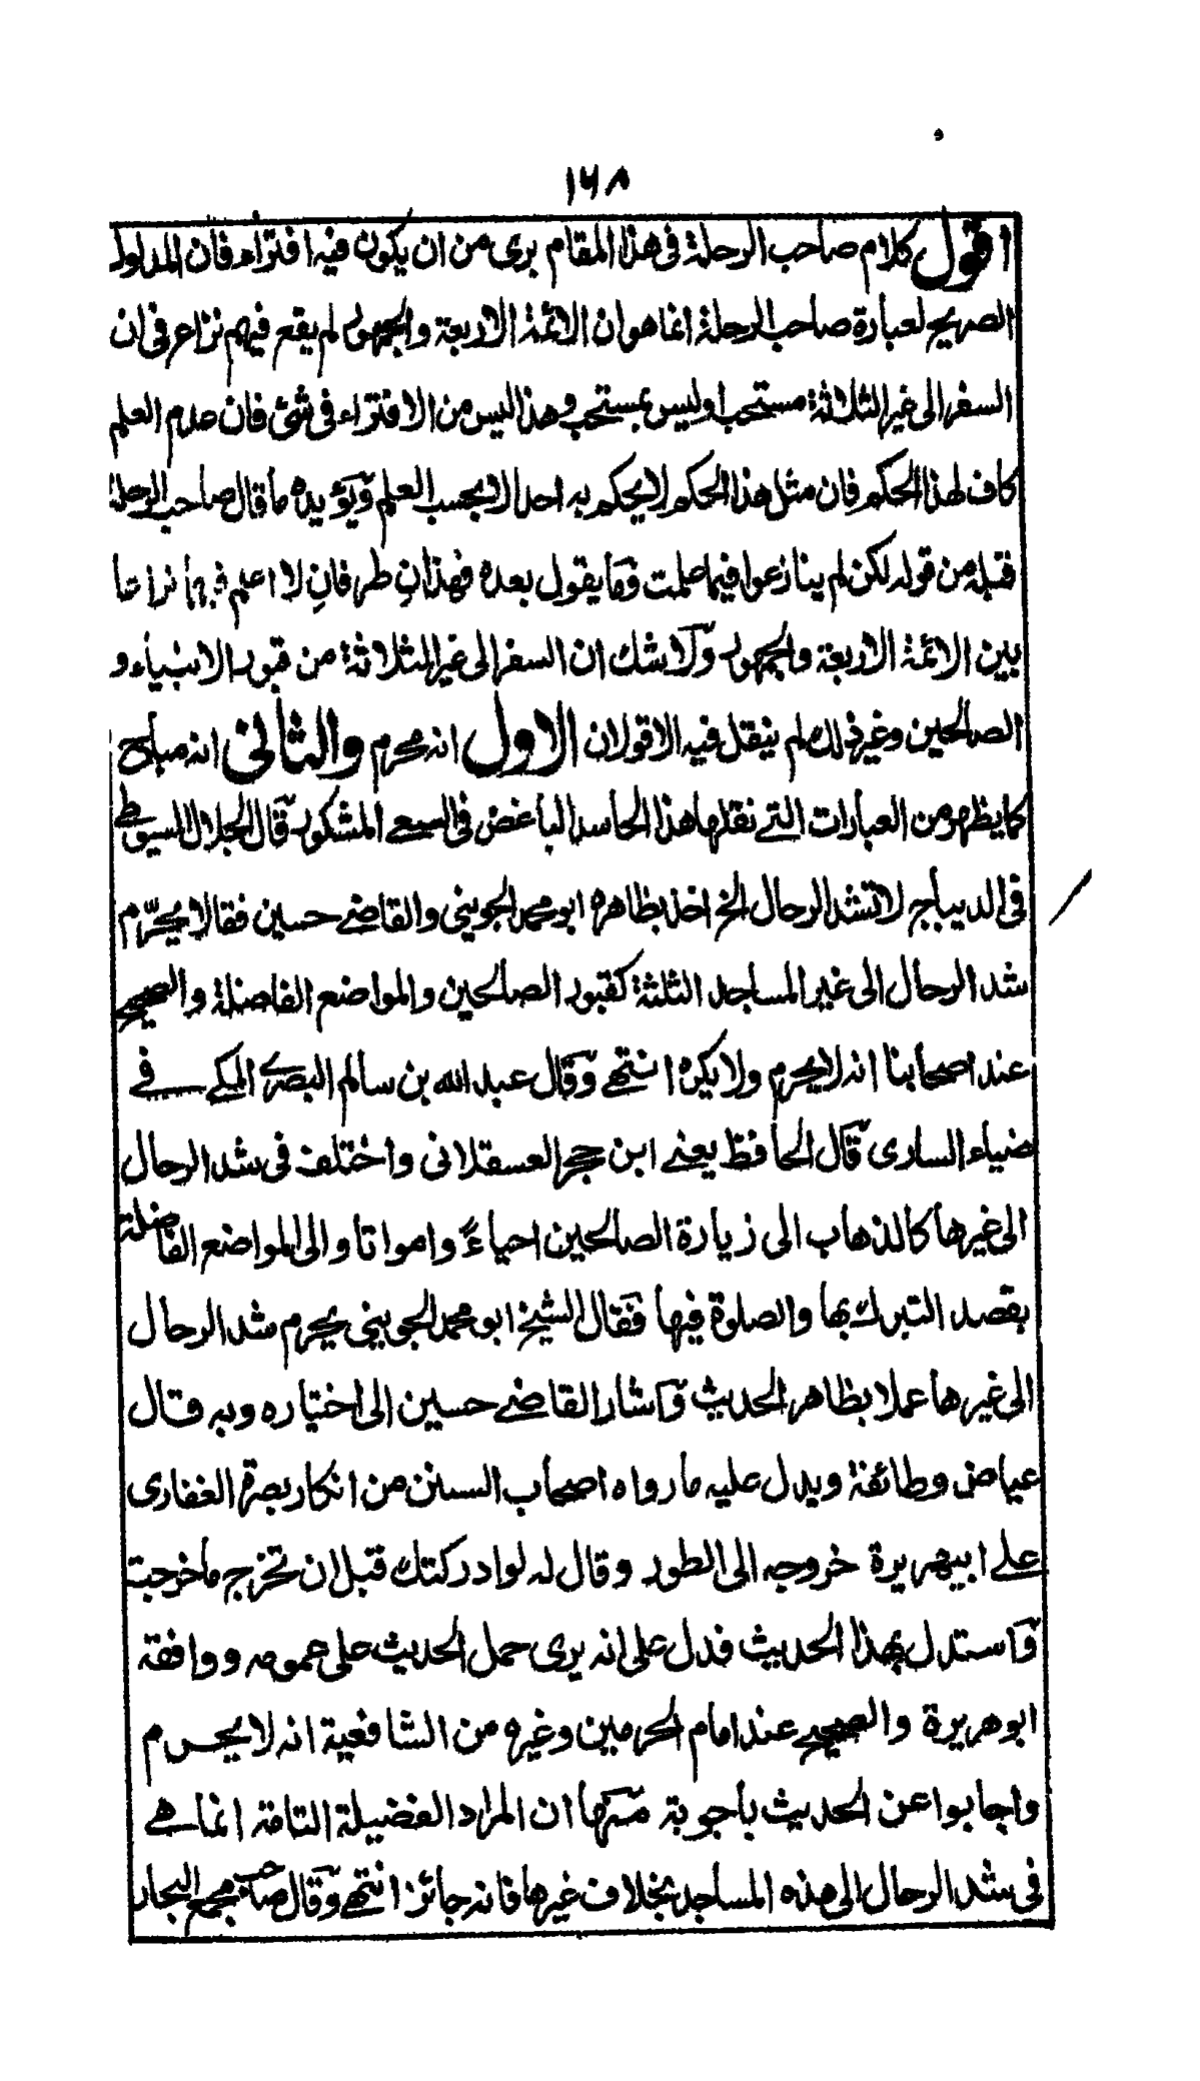 ١٦٨
اقول كلام صاحب الرحلة فى هذا المقام برى من ان يكون فيه افتراء فان المدلول
الصريح لعبارة صاحب الرحلة انما هو ان الائمة الاربعة والجمهور لم يقع فيهم نزاع فى ان
السفر الى غير الثلاثة مستحب او ليس بمستحب وهذا ليس من الافتراء فى شئ فان عدم العلم
كاف لهذا الحكم فان مثل هذا الحكم لا يحكم به احد الا بحسب العلم ويؤيده ما قال صاحب الرحلة
قبله من قوله لكن لم يتنازعوا فيما علمت وما يقول بعده فهذان طرفان لا اعلم فيهما نزاعا
بين الائمة الاربعة والجمهور ولا شك ان السفر الى غير الثلاثة من قبور الانبياء و
الصالحين وغير ذلك لم ينقل فيه الا قولان الاول انه محرم والثانى انه مباح
كما يظهر من العبارات التے نقلها هذا الحاسد الباغض فى السعے المشكور قال الجلال السيوطے
فى الديباج لا تشد الرحال الخ اخذ بظاهره ابو محمد الجوينى والقاضے حسين فقالا يحرّم
شد الرحال الى غير المساجد الثلثة كقبور الصالحين والمواضع الفاضلة والصحيح
عند اصحابنا انه لا يحرم ولا يكره انتهے وقال عبد الله بن سالم البصرے المكے فے
ضياء السارى قال الحافظ يعنے ابن حجر العسقلانى واختلف فى شد الرحال
الى غيرها كالذهاب الى زيارة الصالحين احياءً وامواتا والى المواضع الفاضلة
بقصد التبرك بها والصلوة فيها فقال الشيخ ابو محمد الجوينى يحرم شد الرحال
الى غيرها عملا بظاهر الحديث واشار القاضے حسين الى اختياره وبه قال
عياض وطائفة ويدل عليه ما رواه اصحاب السنن من انكار بصرة الغفارى
علے ابيهريرة خروجه الى الطور وقال له لو ادركتك قبل ان تخرج ما خرجت
واستدل بهذا الحديث فدل على انه يرى حمل الحديث على عمومه ووافقه
ابو هريرة والصحيح عند امام الحرمين وغيره من الشافعية انه لا يحرم
واجابوا عن الحديث باجوبة منها ان المراد الفضيلة التامة انما هے
فى شد الرحال الى هذه المساجد بخلاف غيرها فانه جائز انتهے وقال صاحب مجمع البحار